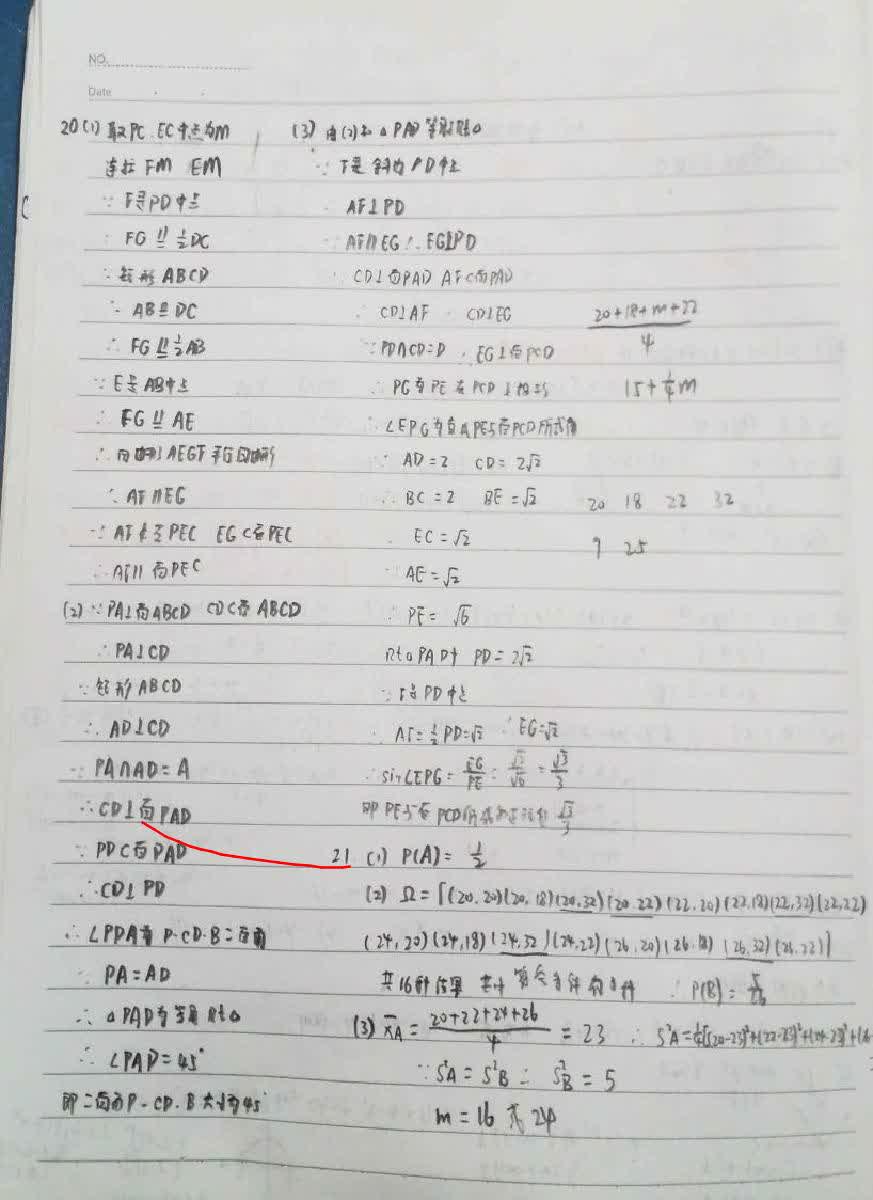 NO.
Date
20(1) 取PC、EC中点为M
连接 FM EM
∵ F是PD中点
∴ FG ∥= 1/2 DC
∵ 矩形 ABCD
∴ AB ∥= DC
∴ FG ∥= 1/2 AB
∵ E是AB中点
∴ FG ∥= AE
∴ 四边形AEGF 平行四边形
∴ AF∥EG
∵ AF⊄面PEC EG⊂面PEC
∴ AF∥面PEC
(2) ∵ PA⊥面ABCD CD⊂面ABCD
∴ PA⊥CD
∵ 矩形ABCD
∴ AD⊥CD
∵ PA∩AD=A
∴ CD⊥面PAD
∵ PD⊂面PAD
∴ CD⊥PD
∴ ∠PDA为 P-CD-B二面角
∵ PA=AD
∴ △PAD为等腰Rt△
∴ ∠PAD=45°
即二面角P-CD-B大小为45°
(3) 由(2)知△PAD等腰Rt△
∵ F是斜边PD中点
∴ AF⊥PD
∵ AF∥EG ∴ EG⊥PD
∵ CD⊥面PAD AF⊂面PAD
∴ CD⊥AF ∴ CD⊥EG
∵ PD∩CD=D ∴ EG⊥面PCD
∴ PG为PE在PCD上
∴ ∠EPG为直线PE与面PCD所成角
∵ AD=2 CD=2√2
∴ BC=2 BE=√2
∴ EC=√2
∵ AE=√2
∴ PE=√6
Rt△PAD中 PD=2√2
∵ F为PD中点
∴ AF=1/2 PD=√2 ∴ EG=√2
∴ sin∠EPG = EG/PE = √2/√6 = √3/3
即PE与面PCD所成角正弦值√3/3
(20+18+m+22)/4
15+1/4 m
20 18 22 32
9 25
21 (1) P(A)=1/2
(2) Ω={(20,20)(20,18)(20,32)(20,22)(22,20)(22,18)(22,32)(22,22)
(24,20)(24,18)(24,32)(24,22)(26,20)(26,18)(26,32)(26,22)}
共16种结果 其中符合条件有 ∴ P(B)=
(3) x̄A = (20+22+24+26)/4 = 23 ∴ S²A=1/4[(20-23)²+(22-23)²+(24-23)²+(26
∵ S²A=S²B ∴ S²B=5
m=16 或 24